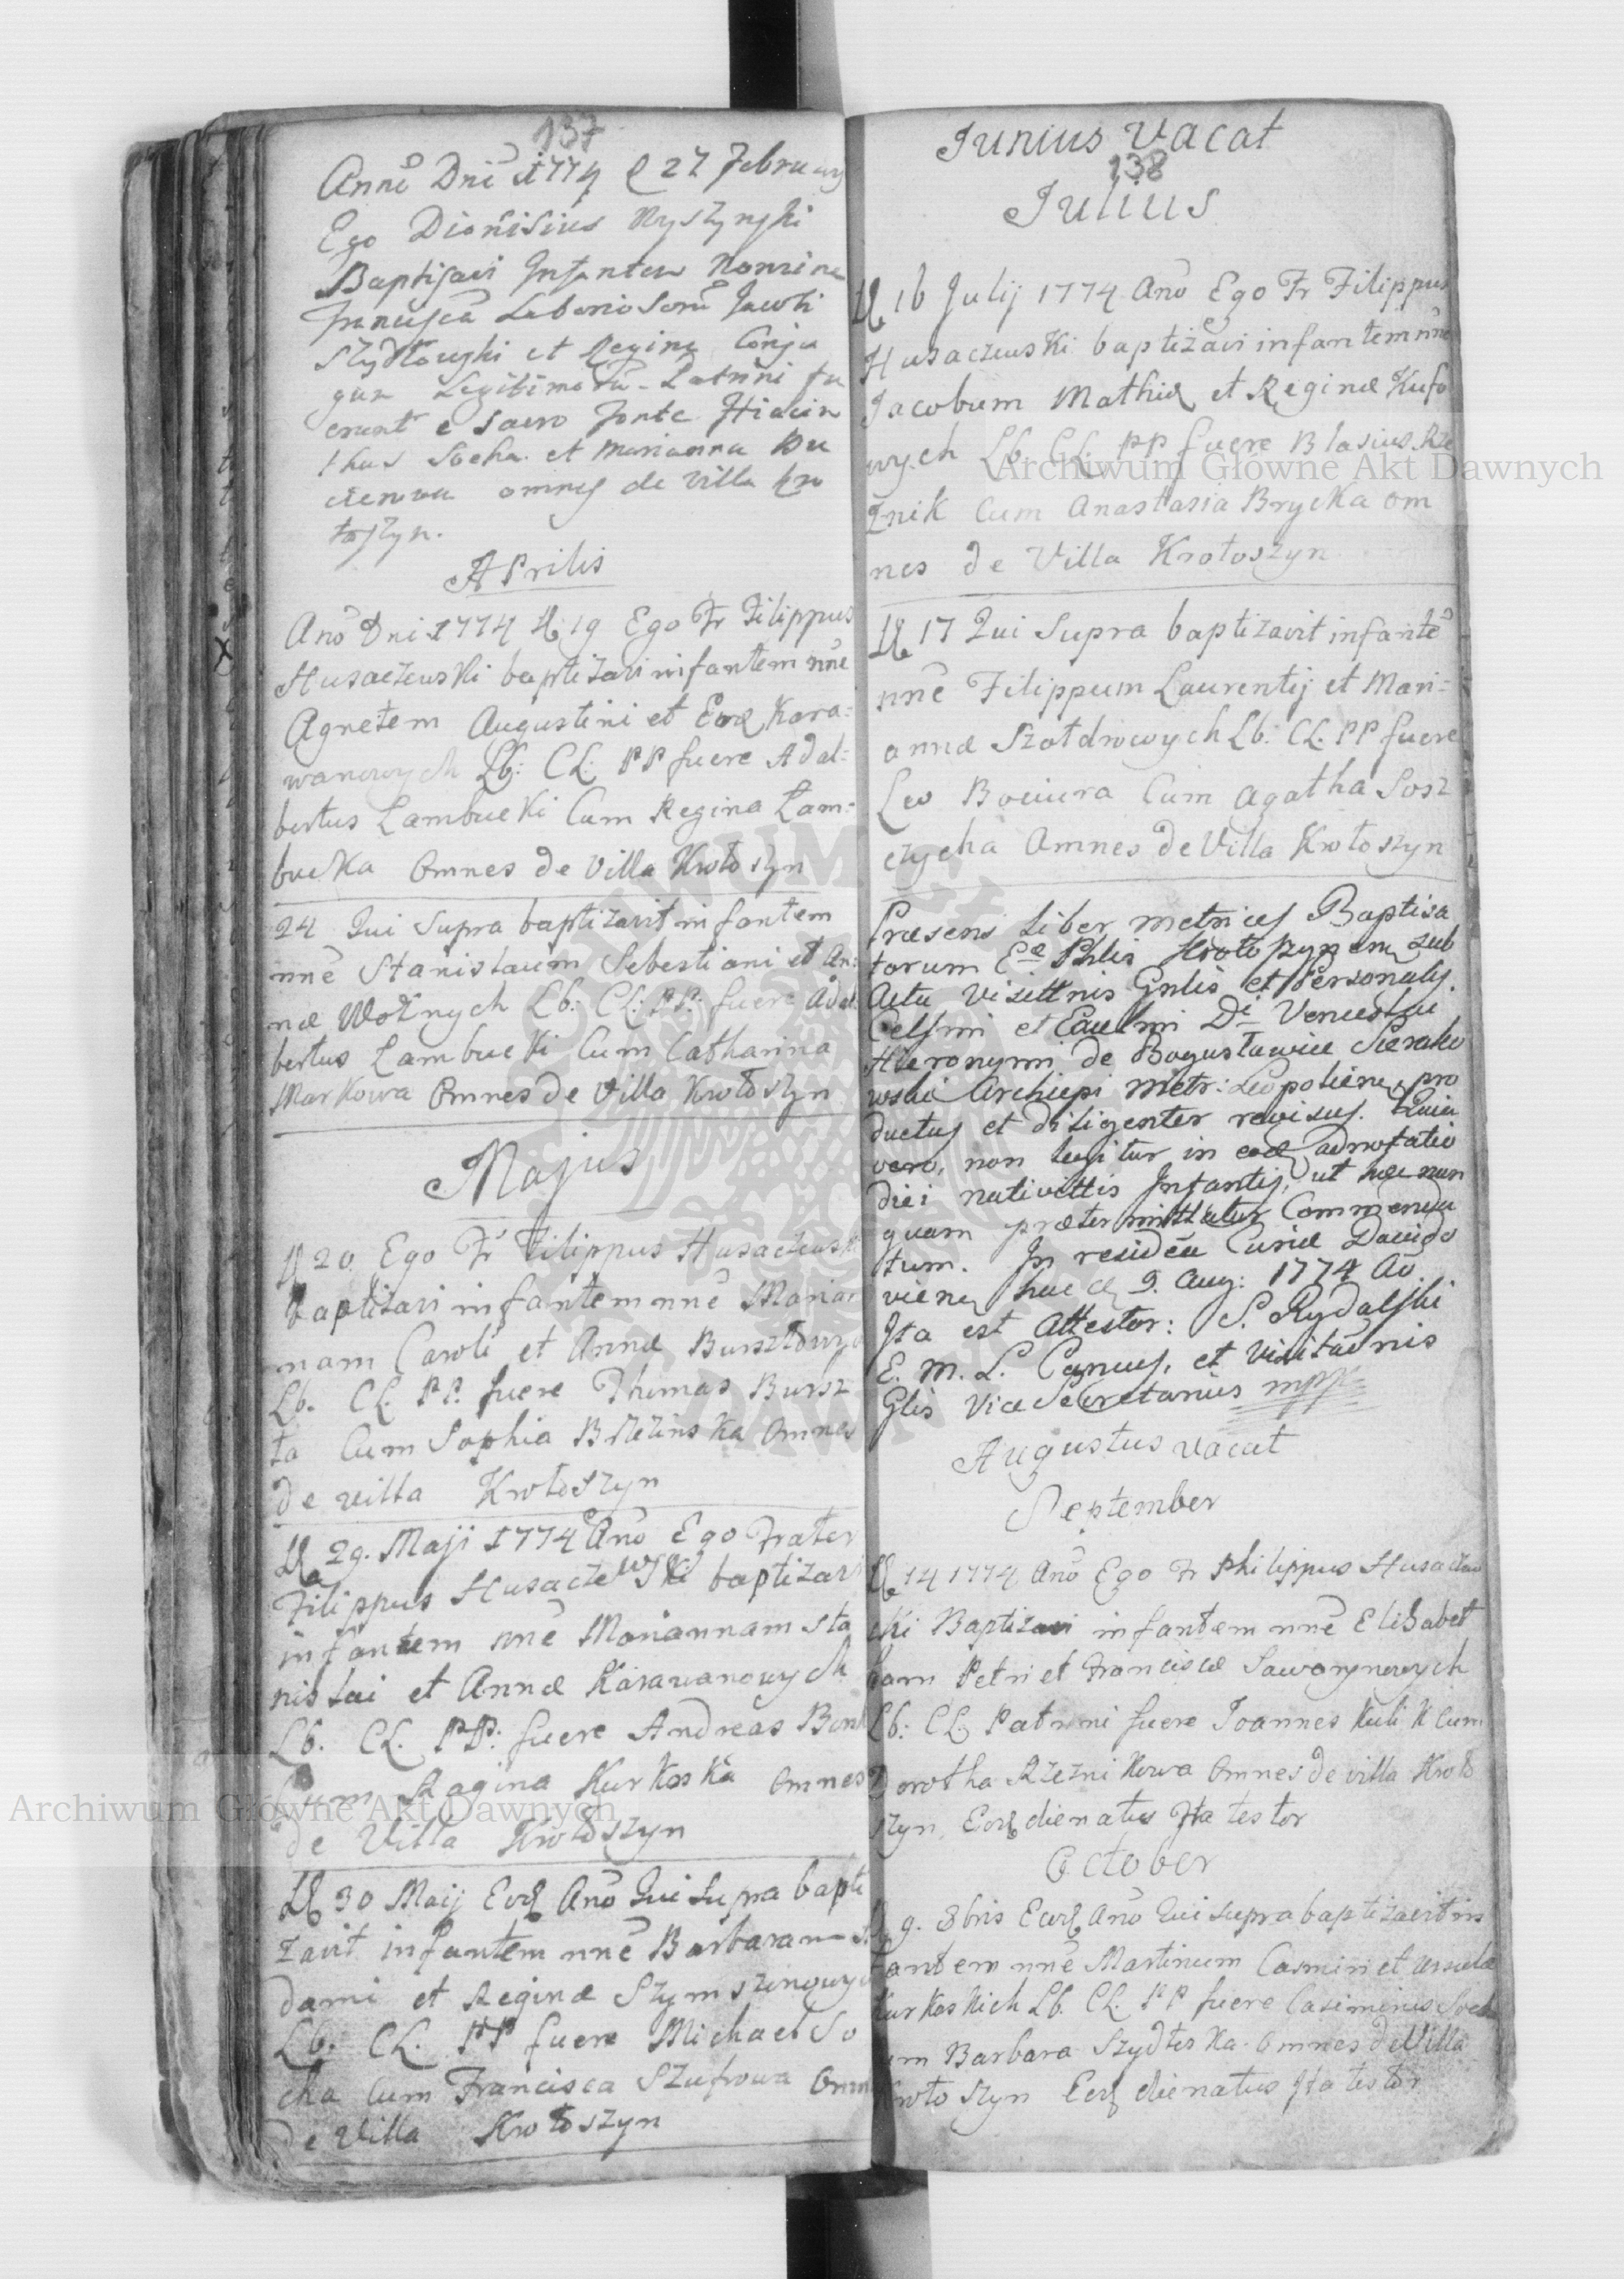 137
Anno Dni 1774 d 27 February
Ego Dionisius Ryszynski
Baptisavi Infantem Nomine
Franciscā Laboriosorū Jacobi
Szydłowski et Regina Conju
gum Legitimorū Patrini fu
erunt e sacro fonte Hiacin
thus Socha et Marianna
omnes de Villa Kro
toszyn.
Aprilis
Anō Dni 1774 19 Ego Fr Filippus
Husaczewski baptizavi infantem nn̄e
Agnetem Augustini et Evæ Kara=
wanowych Lb: CL: PP fuere Adal=
bertus Lambucki Cum Regina Łam=
bucka Omnes de Villa Krotoszyn
24 Qui Supra baptizavit infantem
nn̄e Stanislaum Sebestiani et An:
næ Woznych Lb: CL: PP: fuere Adal
bertus Lambucki Cum Catharina
Markowa Omnes de Villa Krotoszyn
Majus
20 Ego Fr Filippus Husaczewski
Baptizavi infantem nn̄e Marian
nam Caroli et Annæ Bursztowych
Lb. CL. PP. fuere Thomas Bursz
ta Cum Sophia Brzezinska Omnes
de villa Krotoszyn
29. Maji 1774 Anō Ego Frater
Filippus Husaczewski baptizavi
infantem nn̄e Mariannam Sta
nislai et Annæ Karawanowych
Lb. CL. PP: fuere Andreas
Cum Ragina Kurkoska Omnes
de Villa Krotoszyn
30 Maij Eod Anō Qui Supra bapti
zavit infantem nn̄e Barbaram A
dami et Reginæ Szymszinowych
Lb. CL. PP fuere Michael So
cha Cum Francisca Szufrowa Omnes
de Villa Krotoszyn
Junius Vacat
138
Julius
16 Julij 1774 Anō Ego Fr Filippus
Husaczewski baptizavi infantem nn̄e
Jacobum Mathiæ et Reginæ Kufo
wych Lb. CL. PP fuere Blasius Rze
znik Cum Anastasia Brycka om
nes de Villa Krotoszyn
17 Qui Supra baptizavit infantē
nn̄e Filippum Laurentij et Mari=
annæ Szotdrowych Lb: CL. PP fuere
Leo Bowura Cum Agatha Sosz
czycha Omnes de Villa Krotoszyn
Præsens Liber Metrices Baptisa
torum Eæ Phlis Krotoszynen sub
Actu Visittnis Gnlis et Personalis
Celsmi et Excelmi Di Venceslai
Hieronymi de Bogusławice Sierako
wski Archiepi Metr: Leopolien pro
ductus et diligenter revisus. Quia
vero, non legitur in eod adnotatio
diei nativittis Infantis, ut hæ nun
quam prætermittatur Commenda
tum. In residēa Curiæ Dawido
vien hac d 9. Aug: 1774 Ao
Ita est Attestor: S. Rydalski
E. M. L. Canus, et Visitaōnis
Glis Vice Secretarius mpp
Augustus vacat
September
14 1774 Anō Ego Fr Philippus Husaczew
ski Baptizavi infantem nn̄e Elisabet
ham Petri et Franciscæ Saworynowych
Lb: CL Patrini fuere Joannes Kulik Cum
Dorotha Rzeznikowa Omnes de villa Kroto
szyn, Eod die natus Ita testor
October
9. 8bris Eod Anō Qui supra baptizavit in
fantem nn̄e Martinum Casmiri et Ursulæ
Kurkoskich Lb. CL. PP fuere Casimirus Socha
cum Barbara Szydłoska Omnes de Villa
Krotoszyn Eod die natus Ita testor